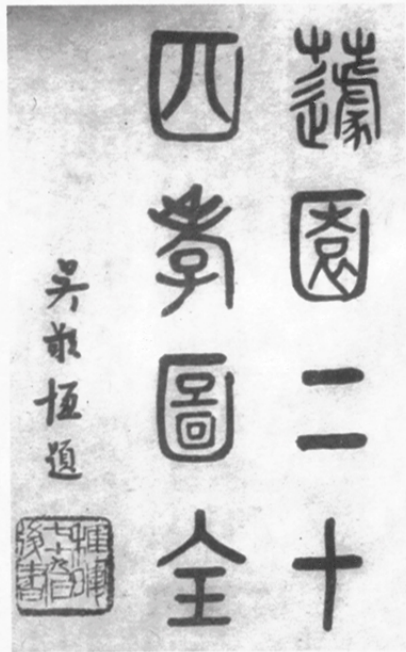 蘧園二十
四孝圖全
吳敬恆題